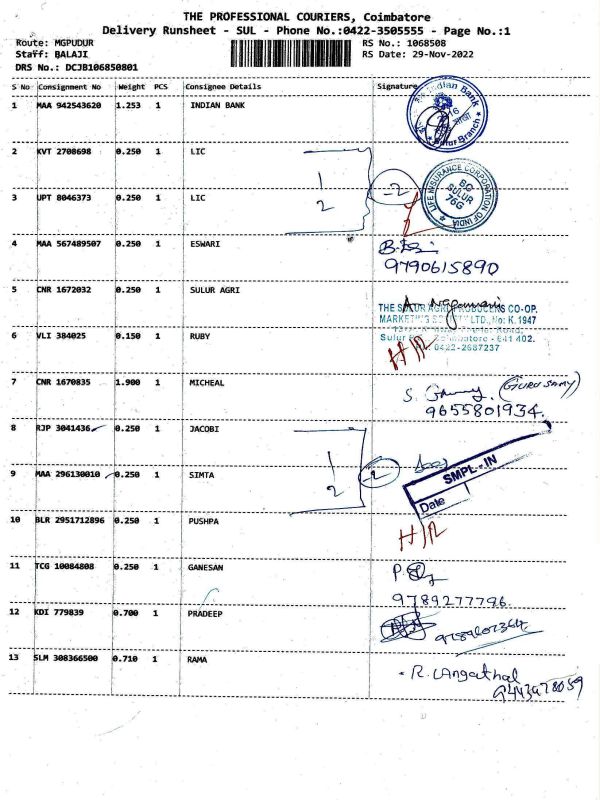 THE PROFESSIONAL COURIERS, Coimbatore
Delivery Runsheet - SUL - Phone No.:0422-3505555 - Page No.:1
Route: MGPUDUR RS No.: 1068508
Staff: BALAJI RS Date: 29-Nov-2022
DRS No.: DCJB106850801
S No Consignment No Weight PCS Consignee Details Signature
1 MAA 942543620 1.253 1 INDIAN BANK
Indian Bank
Sulur Branch
2 KVT 2708698 0.250 1 LIC
1
2
-2
LIFE INSURANCE CORPORATION OF INDIA
BO
SULUR
76G
3 UPT 8046373 0.250 1 LIC
4 MAA 567489507 0.250 1 ESWARI
9790615890
5 CNR 1672032 0.250 1 SULUR AGRI
THE SULUR AGRI PRODUCERS CO-OP.
MARKETING SOCIETY LTD., No: K. 1947
Coimbatore - 641 402.
0422-2687237
6 VLI 384025 0.150 1 RUBY
7 CNR 1670835 1.900 1 MICHEAL
(GURUSAMY)
9655801934.
8 RJP 3041436 0.250 1 JACOBI
1
2
-2
SMPL - IN
Date
9 MAA 296130010 0.250 1 SIMTA
10 BLR 2951712896 0.250 1 PUSHPA
11 TCG 10084808 0.250 1 GANESAN
9789277796.
12 KDI 779839 0.700 1 PRADEEP
13 SLM 308366500 0.710 1 RAMA
R. Langathal